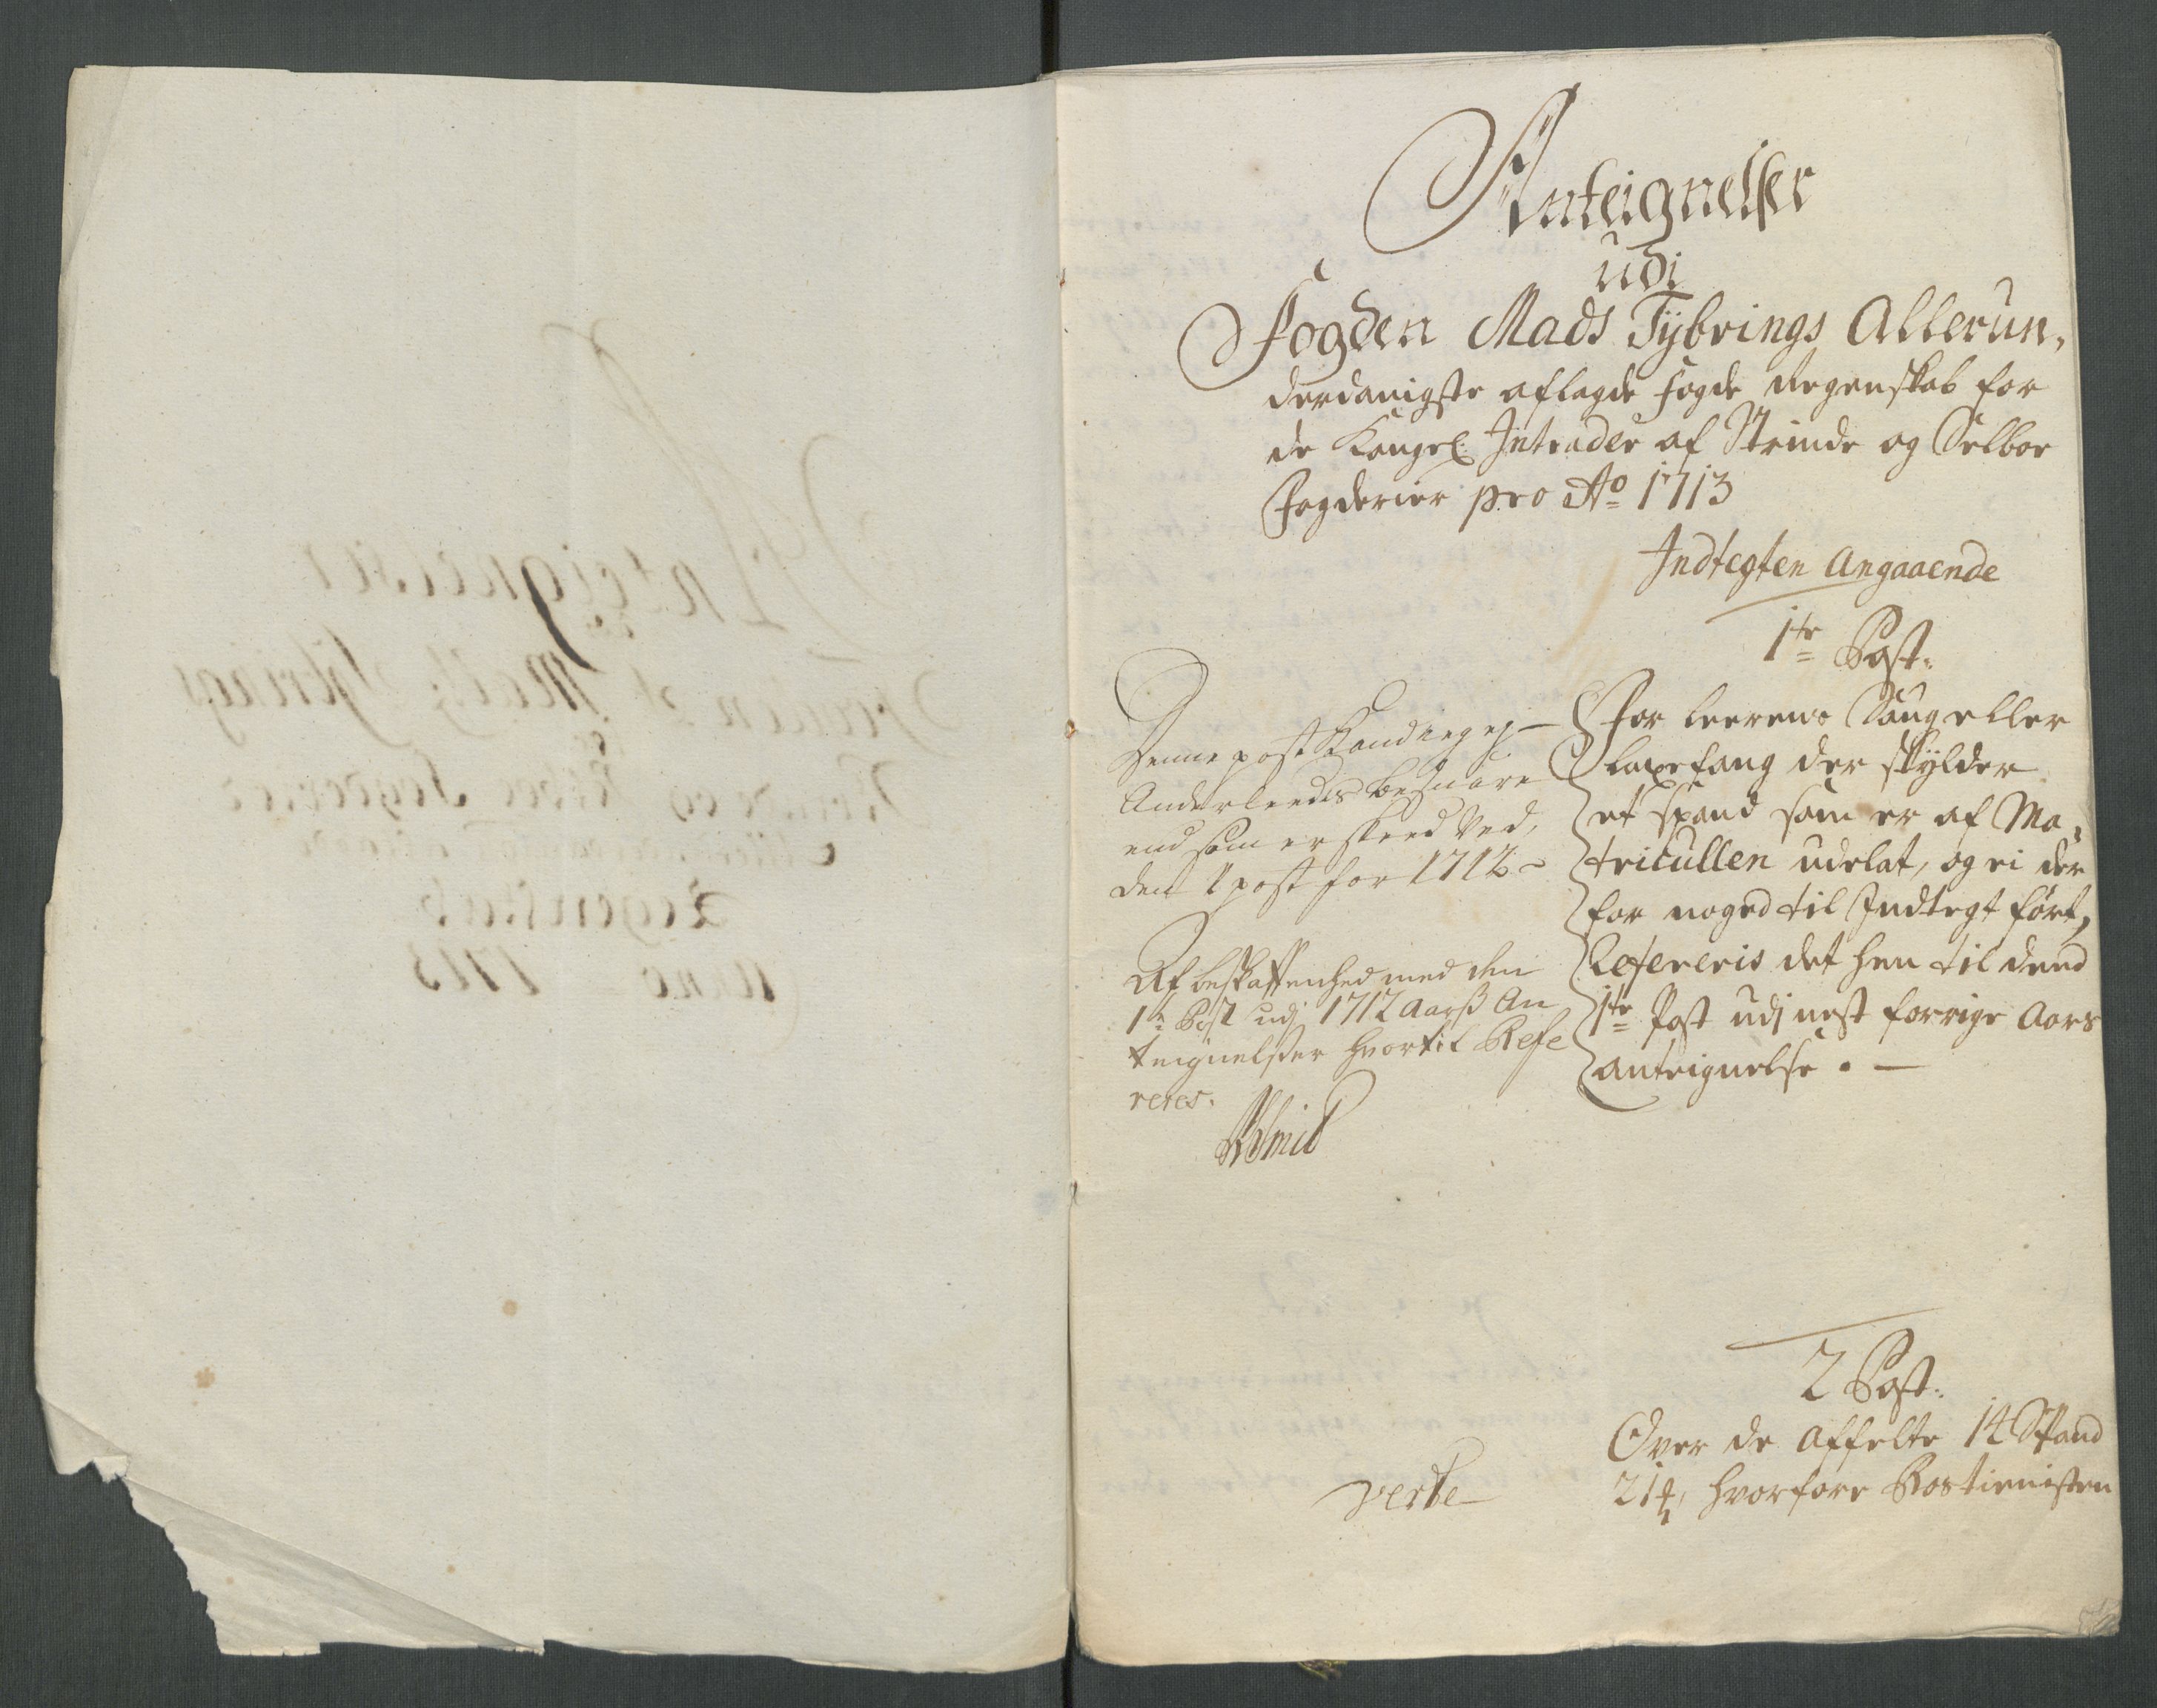 Anteignelser
udi
Fogden Mads Tÿbrings Allerun,
derdanigste aflagde fogde Regenskab for
de Kongel: Intrader af Strinde og Selboe
Fogderier pro Ao 1713
Indtegten Angaaende
1te Post:
For leerens Saug eller
laxefang der skÿlder
et spand som er af Ma,
tricullen udelat, og ei der
for noged til Indtegt ført,
Refereris det hen til dend
1te Post udj nest forrige Aars
anteignelse. —
Denne post kand ieg ej
Anderleedes besuare
end som er skeed ved,
den 1 post for 1712 –
Af beskaffenhed med den
1te Post udj 1712 Aarß An
teignelser hvortil Refe
reres.
2 Post:
Over de affelte 14 Spand
21 hvorfore Rostienisten